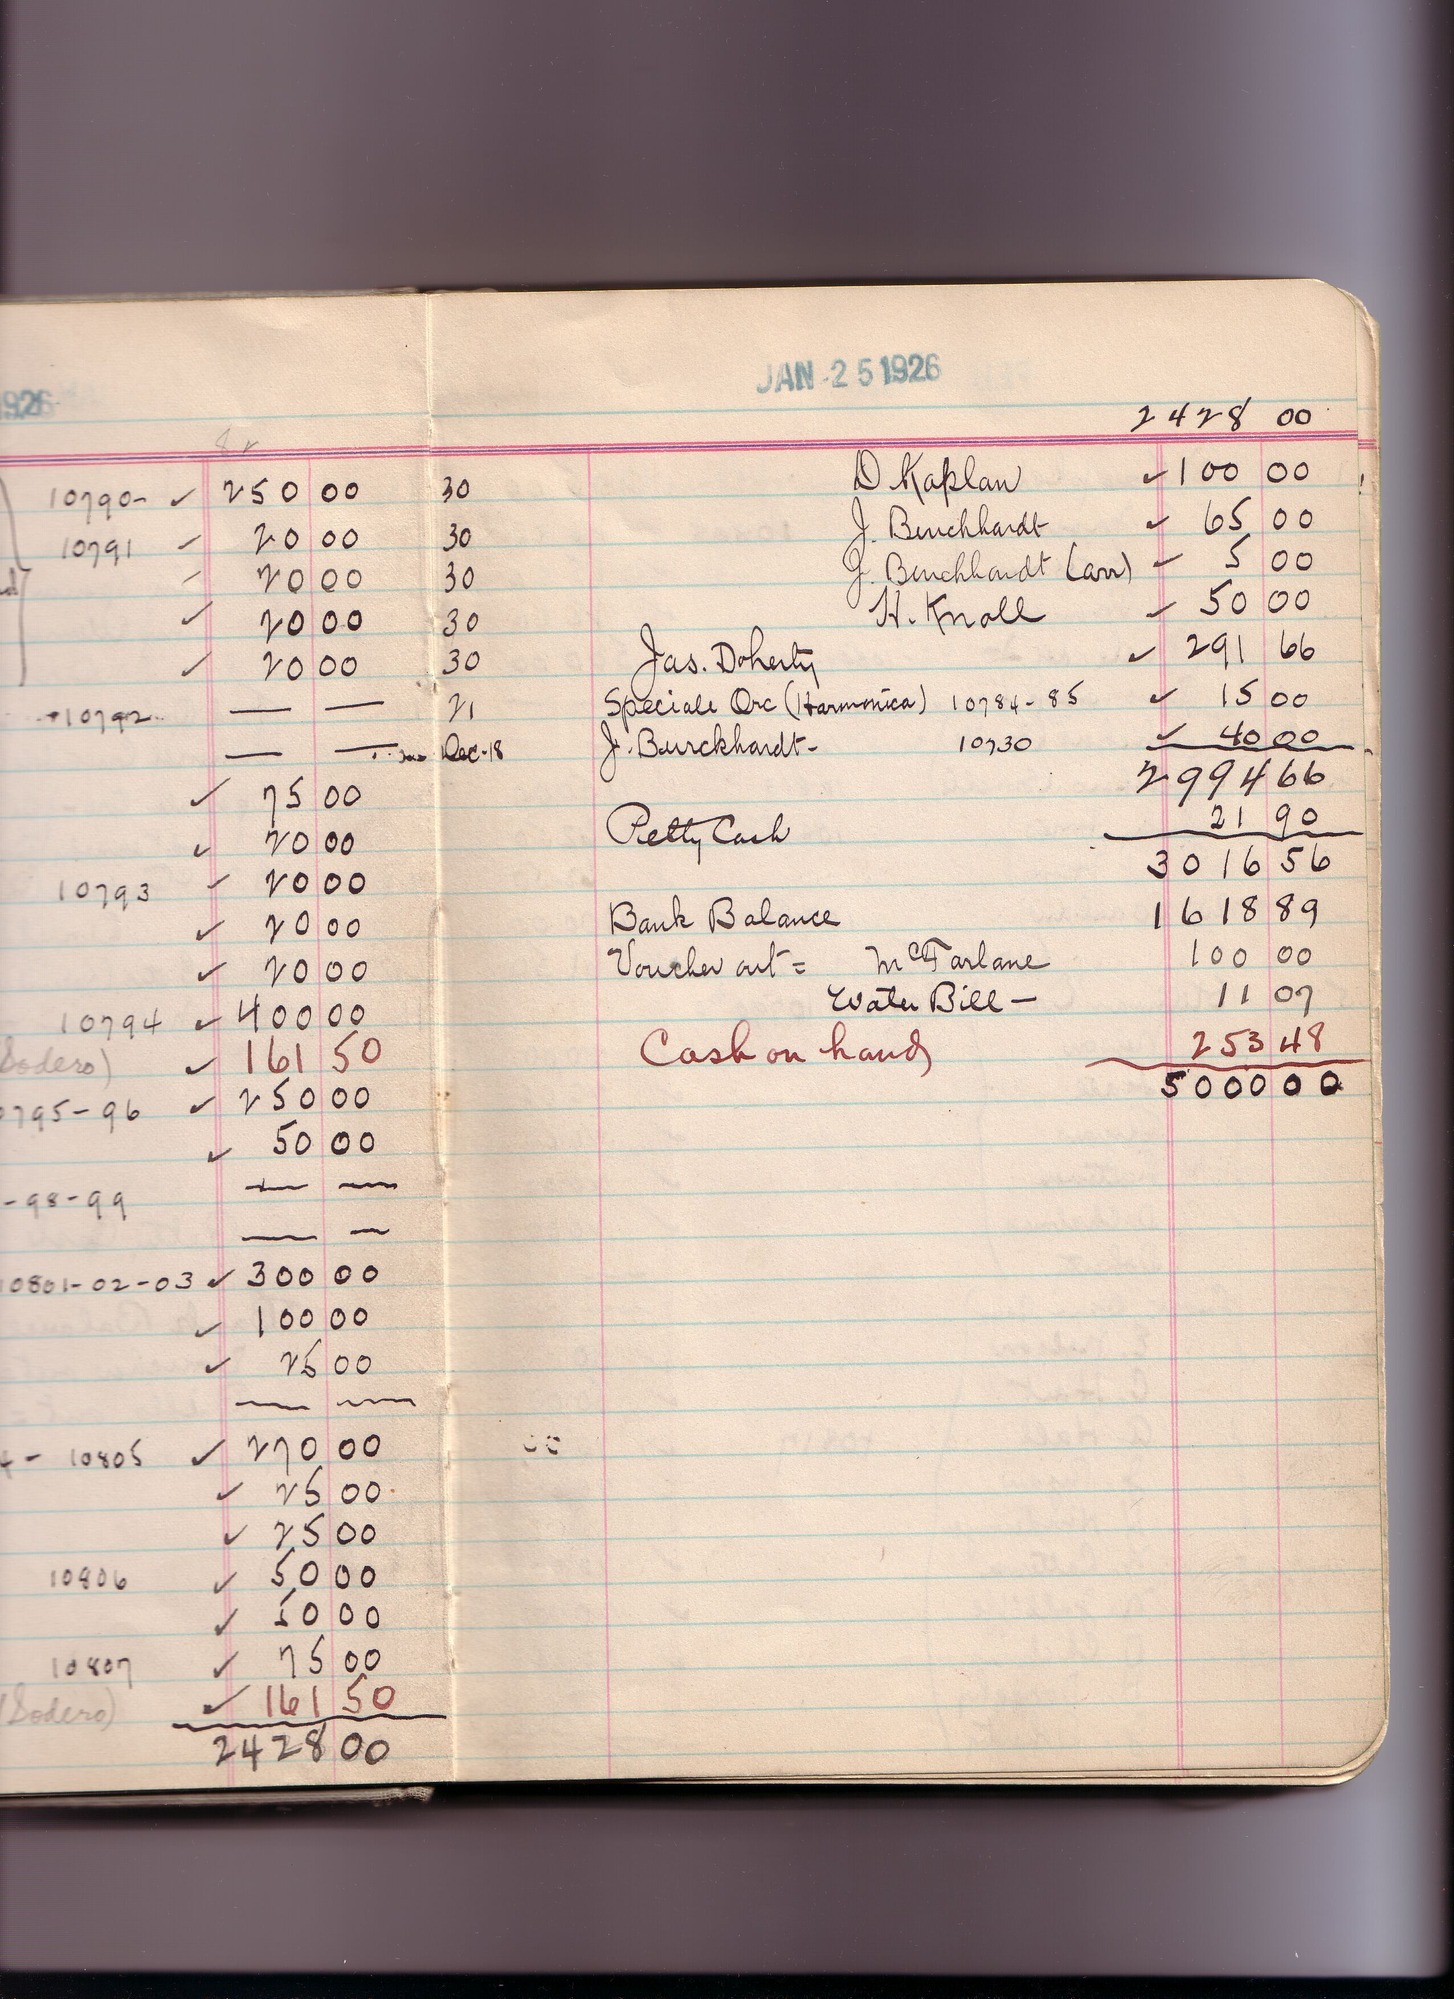 1926
10790- ✓ 250 00
10791 ✓ 20 00
✓ 20 00
✓ 20 00
✓ 20 00
10792 — —
— —
✓ 75 00
✓ 20 00
10793 ✓ 20 00
✓ 20 00
✓ 20 00
10794 ✓ 400 00
Sodero) ✓ 161 50
795-96 ✓ 250 00
✓ 50 00
-98-99 — —
— —
10801-02-03 ✓ 300 00
✓ 100 00
✓ 25 00
— —
4- 10805 ✓ 270 00
✓ 25 00
✓ 25 00
10806 ✓ 50 00
✓ 50 00
10807 ✓ 75 00
(Sodero) ✓ 161 50
2428 00
JAN 25 1926
2428 00
30 D. Kaplan ✓ 100 00
30 J. Burckhardt ✓ 65 00
30 J. Burckhardt (arr) ✓ 5 00
30 H. Knoll ✓ 50 00
30 Jas. Doherty ✓ 291 66
21 Speciale Orc (Harmonica) 10784-85 ✓ 15 00
Dec-18 J. Burckhardt- 10730 ✓ 40 00
2994 66
Petty Cash 21 90
3016 56
Bank Balance 1618 89
Voucher out = McFarlane 100 00
Water Bill — 11 07
Cash on hand 253 48
5000 00